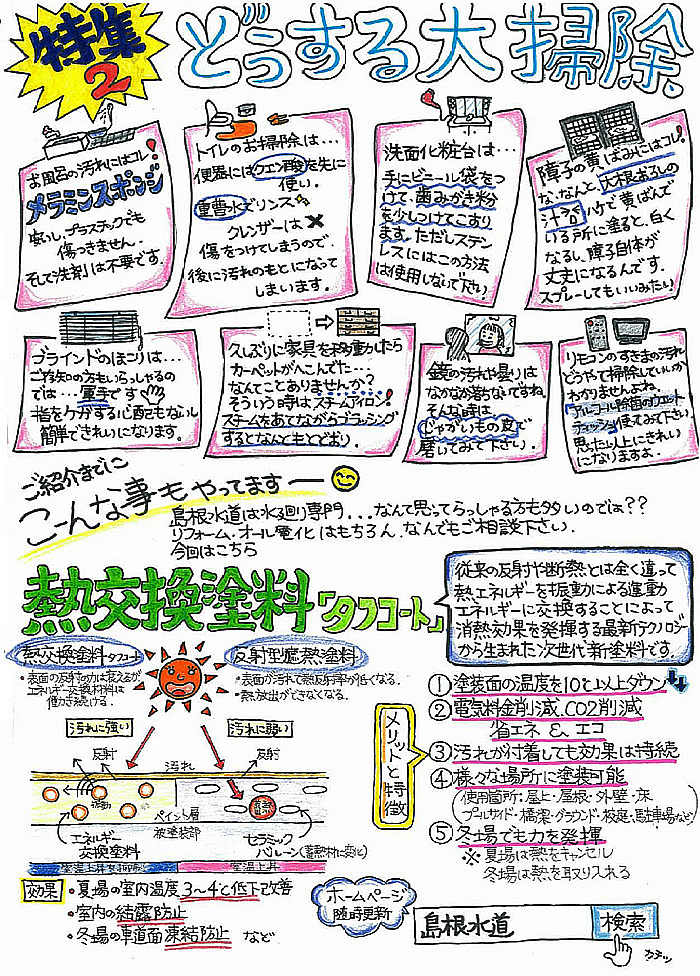 特集2
どうする大掃除
お風呂の汚れにはコレ!
メラミンスポンジ
安いし、プラスチックでも
傷つきません。
そして洗剤は不要です。
トイレのお掃除は…
便器にはクエン酸を先に
使い、
重曹水でリンス
クレンザーは×
傷をつけてしまうので
後に汚れのもとになって
しまいます。
洗面化粧台は…
手にビニール袋をつ
けて、歯みがき粉
を少しつけてこすり
ます。ただしステン
レスにはこの方法
は使用しないで下さい!
障子の黄ばみにはコレ!
なんと、大根おろしの
汁をハケで黄ばんで
いる所に塗ると、白く
なるし、障子自体が
丈夫になるんです。
スプレーしてもいいみたい!
ブラインドのほこりは…
ご存知の方もいらっしゃるの
では…軍手です
指をケガする心配もないし
簡単できれいになります。
久しぶりに家具を移動したら
カーペットがへこんでた…
なんてことありませんか?
そういう時はスチームアイロン!
スチームをあてながらブラッシング
するとなんともとどおり。
鏡の汚れや曇りは
なかなか落ちないですね。
そんな時は
じゃがいもの皮で
磨いてみて下さい。
リモコンのすきまの汚れ
どうやって掃除していいか
わかりませんよね。
アルコール除菌のウェット
ティッシュ使ってみて下さい
思った以上にきれい
になりますよ。
ご紹介までに
こーんな事もやってますー
島根水道は水廻り専門...なんて思ってらっしゃる方も多いのでは??
リフォーム・オール電化はもちろん、なんでもご相談下さい。
今回はこちら
熱交換塗料「タフコート」
従来の反射や断熱とは全く違って
熱エネルギーを振動による運動
エネルギーに交換することによって
消熱効果を発揮する最新テクノロジー
から生まれた次世代新塗料です。
熱交換塗料タフコート
・表面の反射の力は衰えるが
エネルギー交換材料は
働き続ける。
反射型遮熱塗料
・表面が汚れて熱反射率が低くなる。
・熱放出ができなくなる。
汚れに強い
汚れに弱い
反射
汚れ
反射
ペイント層
被塗装部
蓄熱
エネルギー
交換塗料
セラミック
バルーン(蓄熱材に変化)
室温上昇を抑制
室温上昇
メリットと特徴
①塗装面の温度を10℃以上ダウン
②電気料金削減、CO2削減
省エネ & エコ
③汚れが付着しても効果は持続
④様々な場所に塗装可能
(使用箇所:屋上・屋根・外壁・床
プールサイド・橋梁・グラウンド・校庭・駐車場など)
⑤冬場でも力を発揮
※夏場は熱をキャンセル
冬場は熱を取り入れる
効果
・夏場の室内温度3~4℃低下改善
・室内の結露防止
・冬場の車道面凍結防止 など
ホームページ
随時更新
島根水道 検索
カチッ